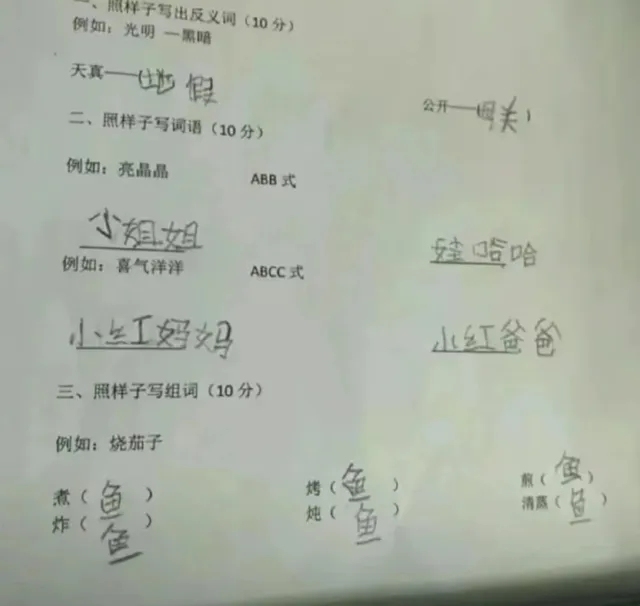 一、照样子写出反义词（10 分）
例如：光明 —黑暗
天真——(地假
公开——(母关 )
二、照样子写词语（10 分）
例如：亮晶晶 ABB 式
小姐姐 娃哈哈
例如：喜气洋洋 ABCC 式
小红妈妈 小红爸爸
三、照样子写组词（10 分）
例如：烧茄子
煮（鱼 ） 烤（鱼 ） 煎（鱼 ）
炸（鱼 ） 炖（鱼 ） 清蒸（鱼 ）